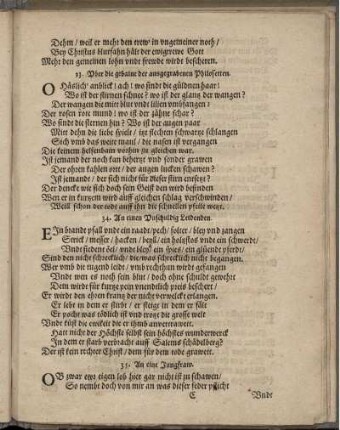 Dehm / weil er mehr den trew in vngemeiner noth /
Bey Christus blutfahn hält der ewigtrewe Gott
Mehr den gemeinen lohn vndt freude wirdt bescheren.
33. Vber die gebaine der ausgegrabenen Philosetten.
O Häßlich' anblick! ach! wo sindt die güldnen haar!
Wo ist der stirnen schnee? wo ist der glantz der wangen?
Der wangen die mit blut vndt lilien vmbfangen?
Der rosen rote mund! wo ist der zähne schar?
Wo sindt die sternen hin? Wo ist der augen paar
Mitt dehn die liebe spielt / itzt flechten schwartze schlangen
Sich vmb das weite maul / die nasen ist vergangen
Die keinem helffenbein vorhin zu gleichen war.
Ist jemandt der noch kan behertzt vnd sonder grawen
Der ohren kahlen ort / der augen lucken schawen?
Ist jemandt / der sich nicht für dieser stirn entsetz?
Der dencke wie sich doch sein Geist den wird befinden
Wen er in kurtzem wird auff gleichen schlag verschwinden /
Weill schon der todt auff ihn die schnellen pfeile wetzt.
34. An einen Vnschuldig Leidenden.
EIn brandt pfall vndt ein raadt / pech / folter / bley vnd zangen
Strick / messer / hacken / beyll / ein holtzstos vndt ein schwerdt /
Vndt siedent öel / vndt bley / ein spies / ein glüendt pferdt /
Sind den nicht schrecklich / die / was schrecklich nicht begangen.
Wer vmb die tugend leidt / vmb recht thun wirdt gefangen
Vndt wen es noth sein blut / doch ohne schuldt gewehrt
Dem wirdt für kurtze pein vnendlich preis beschert /
Er wirdt den ehren krantz der nicht verwelckt erlangen.
Er lebt in dem er sterbt / er steigt in dem er fält
Er pocht was tödtlich ist vnd trotzt die grosse welt
Vndt küst die ewikeit die er ihm anvertrawtt.
Hatt nicht der Höchste selbst sein höchstes wunderwerck
In dem er starb verbracht auff Salems schädelberg?
Der ist kein rechter Christ / dem für dem tode grawett.
35. An eine Jungfraw.
OB zwar ewr eigen lob hier gar nicht ist zu schawen /
So nembt doch von mir an was dieser feder pflicht
C
Vndt